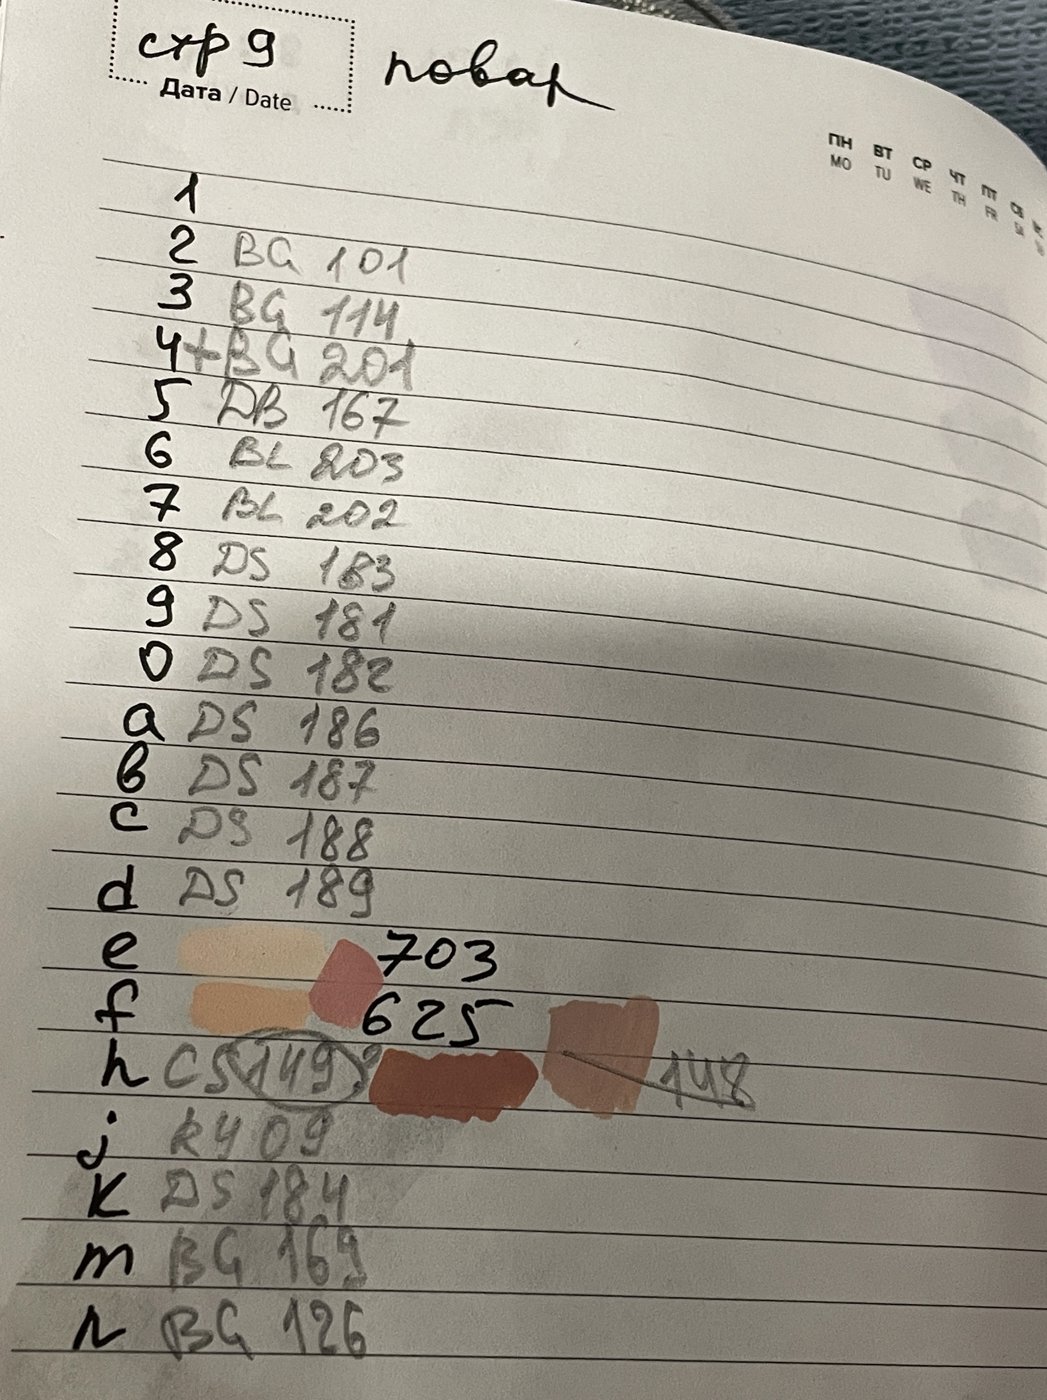 стр 9 повар
Дата / Date
ПН ВТ СР ЧТ ПТ СБ
MO TU WE TH FR SA
1
2 BG 101
3 BG 114
4+BG 201
5 DB 167
6 BL 203
7 BL 202
8 DS 183
9 DS 181
0 DS 182
a DS 186
в DS 187
c DS 188
d DS 189
e 703
f 625
h CS 149? 148
j RY 09
k DS 184
m BG 169
n BG 126